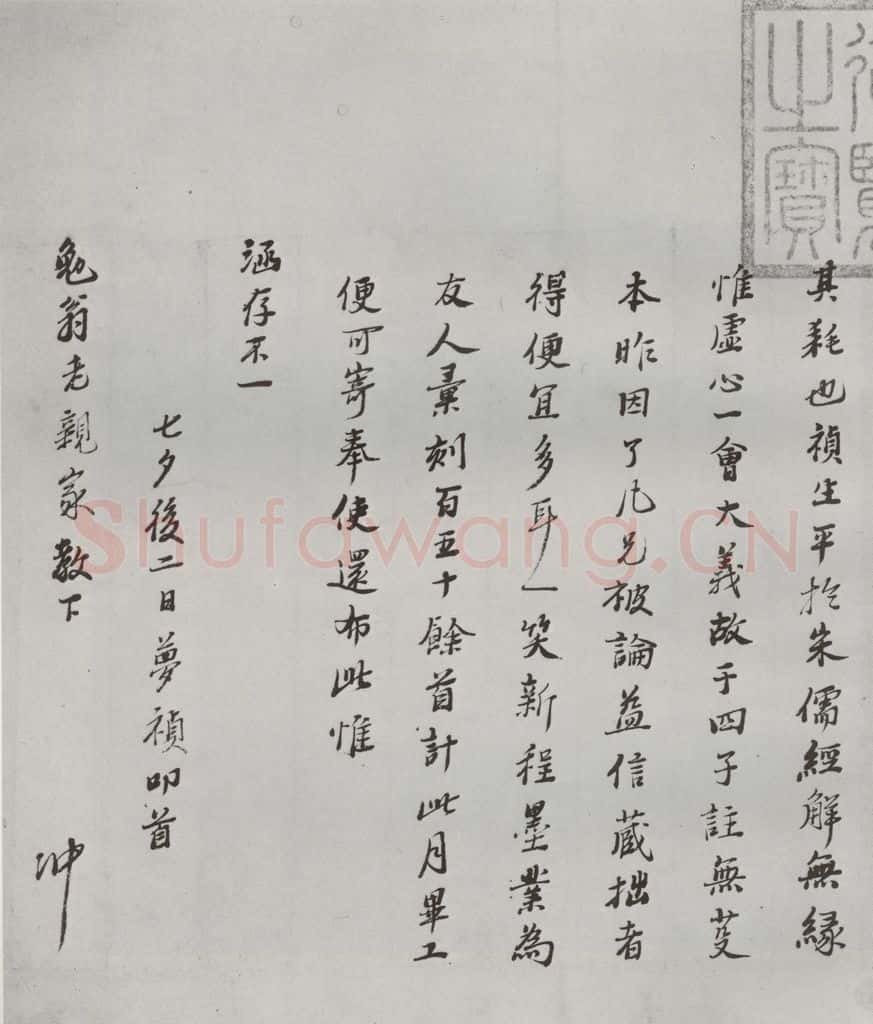 其耗也禎生平於朱儒經解無緣
惟虛心一會大義故于四子註無芟
本昨因了凡兄被論益信藏拙者
得便宜多耳一笑新程墨業為
友人彙刻百五十餘首計此月畢工
便可寄奉使還布此惟
涵存不一
七夕後二日夢禎叩首
勉翁老親家教下
沖
覽
之寶
Shufawang.CN